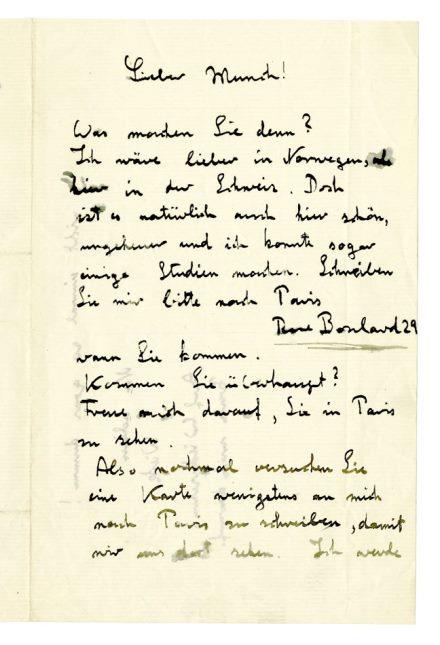 Lieber Munch!
Was machen Sie denn?
Ich wäre lieber in Norwegen, als
hier in der Schweiz. Doch
ist es natürlich auch hier schön,
ungeheuer und ich konnte sogar
einige Studien machen. Schreiben
Sie mir bitte nach Paris
Rue Boulard 29
wann Sie kommen.
Kommen Sie überhaupt?
Freue mich darauf, Sie in Paris
zu sehen.
Also nochmal versuchen Sie
eine Karte wenigstens an mich
nach Paris zu schreiben, damit
wir uns dort sehen. Ich werde